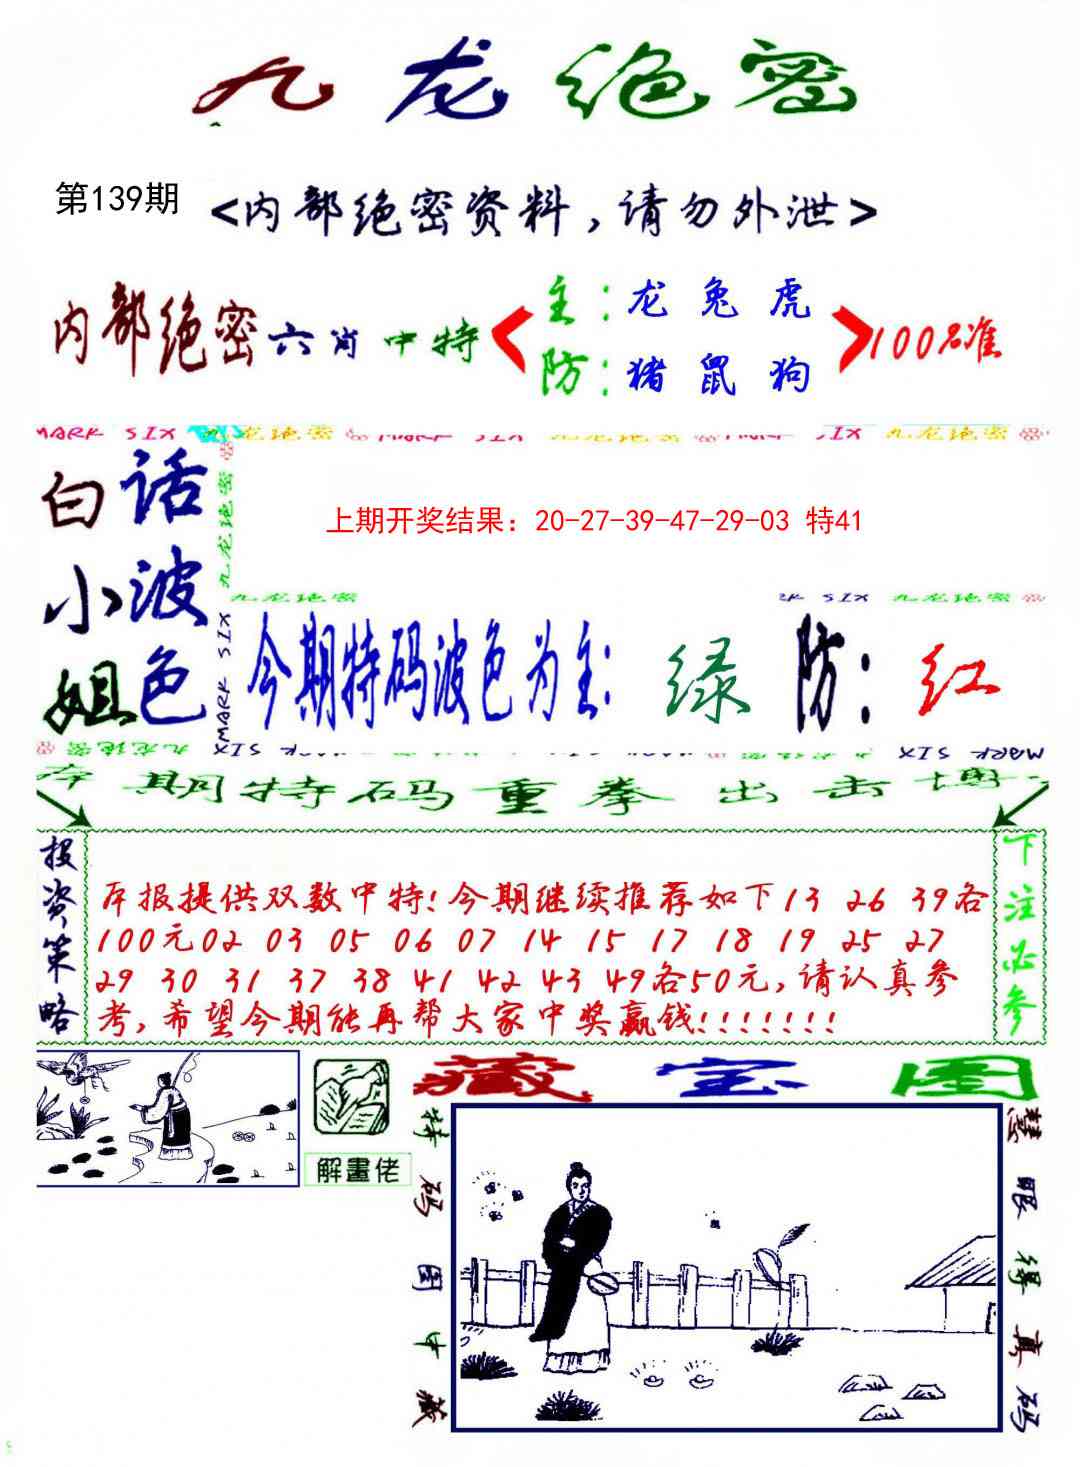 九龙绝密
第139期
<内部绝密资料,请勿外泄>
内部绝密六肖中特
主:龙兔虎
防:猪鼠狗
100%准
MARK SIX 九龙绝密 MARK SIX 九龙绝密 MARK SIX 九龙绝密
白小姐
话波色
九龙绝密
MARK SIX
上期开奖结果：20-27-39-47-29-03 特41
九龙绝密
SIX 九龙绝密
今期特码波色为主:绿 防:红
九龙绝密 MARK SIX
MARK SIX
本期特码重拳出击博
投资策略
本报提供双数中特!今期继续推荐如下13 26 39各
100元02 03 05 06 07 14 15 17 18 19 25 27
29 30 31 37 38 41 42 43 49各50元,请认真参
考,希望今期能再帮大家中奖赢钱!!!!!!!
下注必参
解畫佬
藏宝图
特码图中藏
慧眼得真码